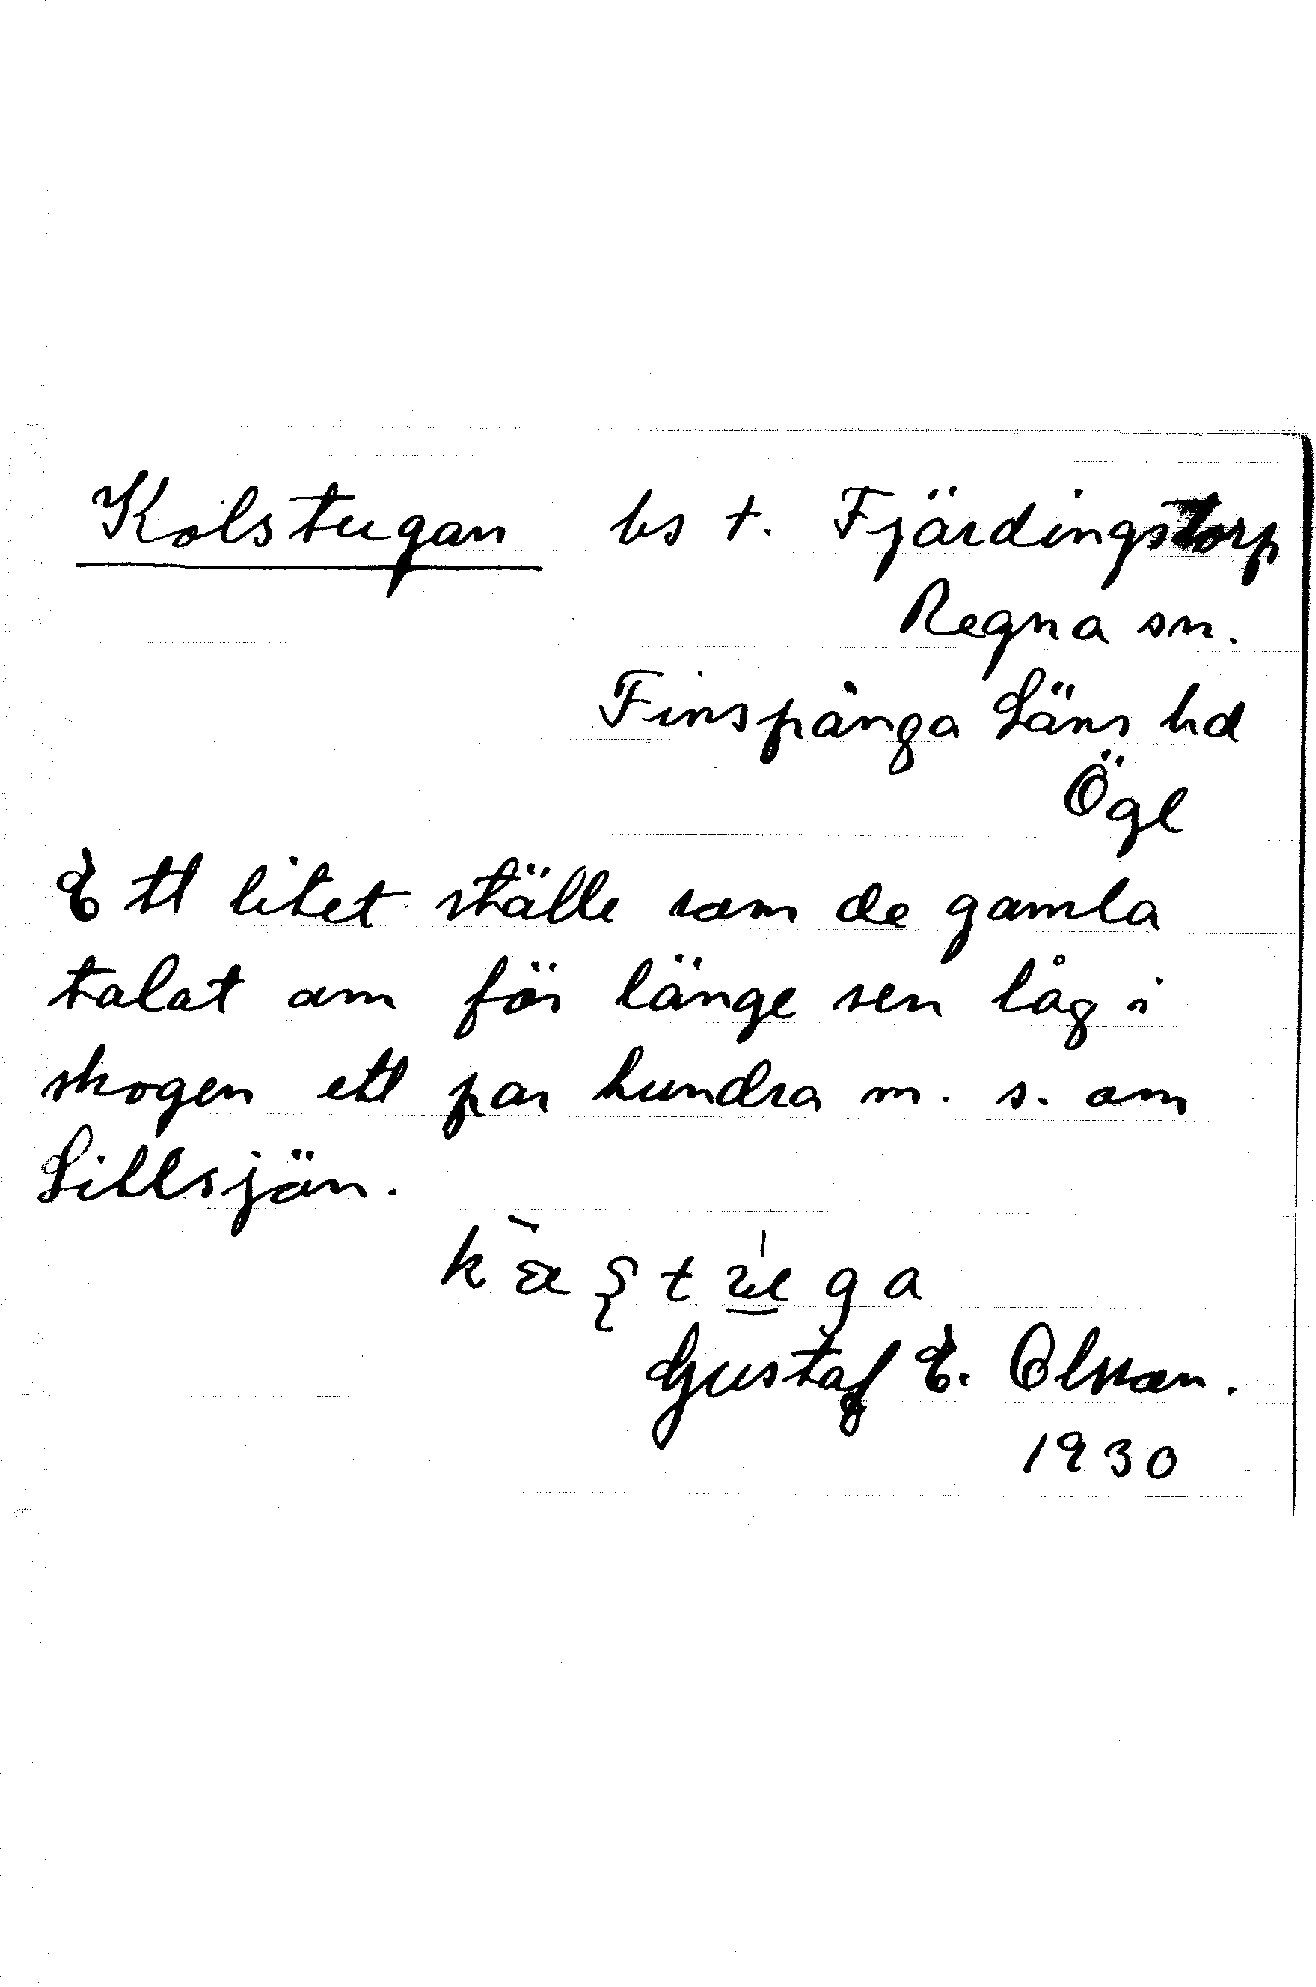 Kolstugan bs t. Fjärdingstorp
Regna sn.
Finspånga Läns hd
Ögl
Ett litet ställe som de gamla
talat om för länge sen låg i
skogen ett par hundra m. s. om
Lillsjön.
Gustaf E. Olsson.
1930